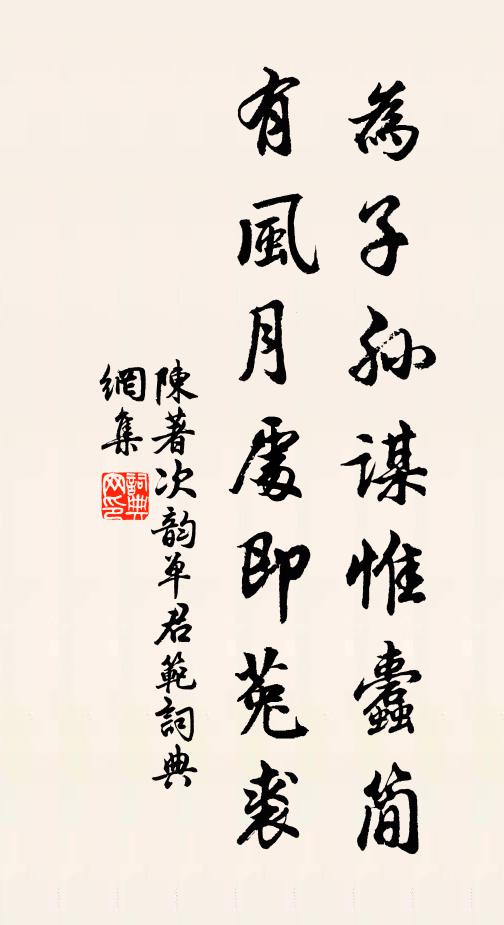 為子孫謀惟蠹簡
有風月處即菟裘
陳著次韵單君範詞典
網集
詞典網印